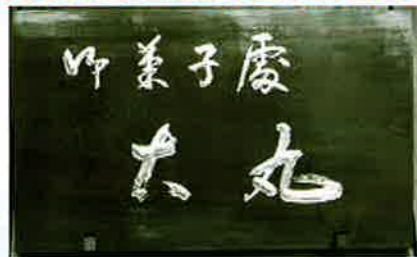 御菓子處
大丸